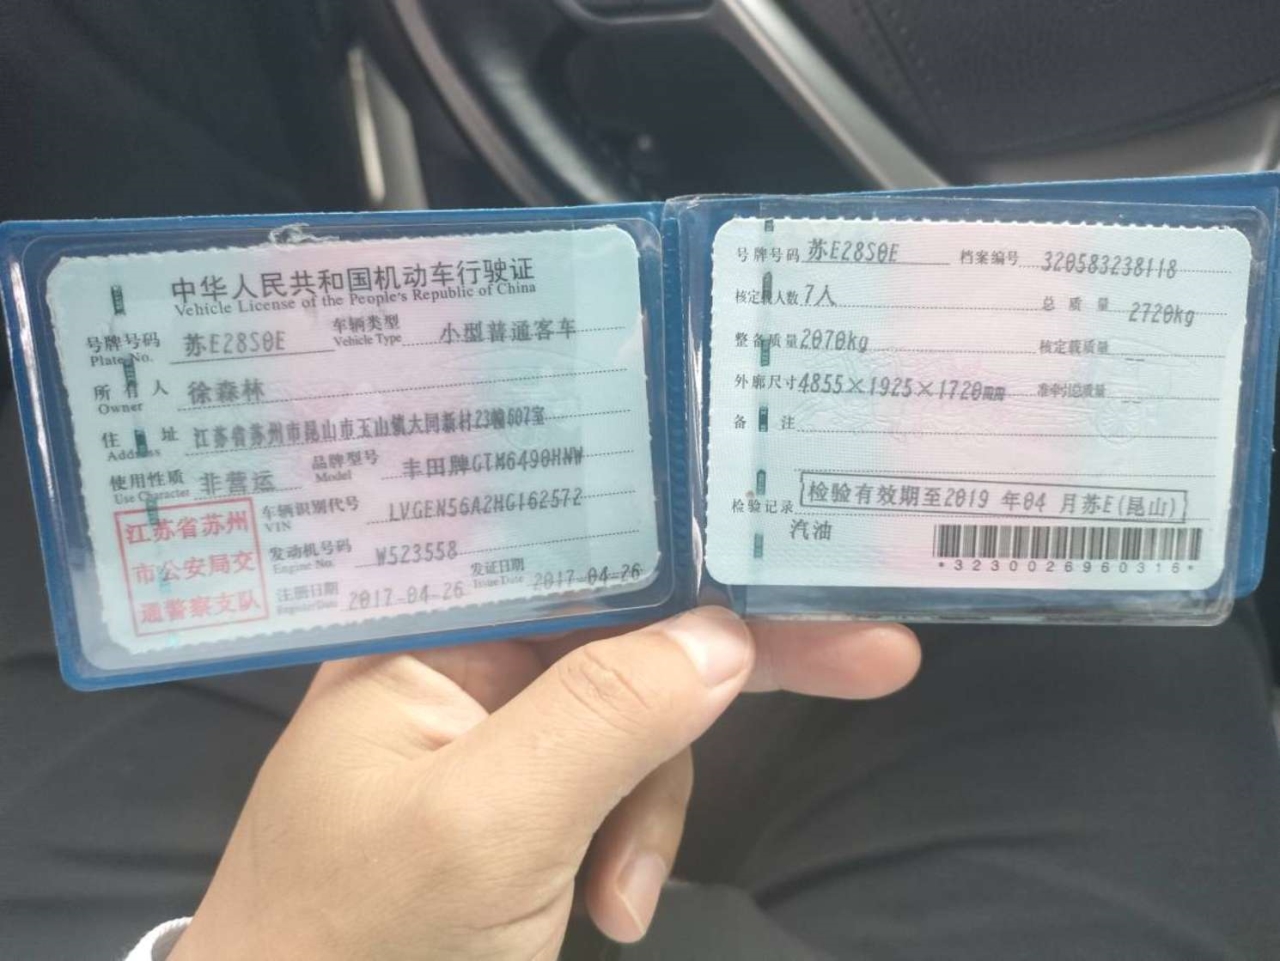 中华人民共和国机动车行驶证
Vehicle License of the People's Republic of China
号牌号码 苏E28S0E 车辆类型 小型普通客车
Plate No. Vehicle Type
所有人 徐森林
Owner
住址 江苏省苏州市昆山市玉山镇大同新村23幢607室
Address
使用性质 非营运 品牌型号 丰田牌GTM6490HNW
Use Character Model
江苏省苏州
市公安局交
通警察支队
车辆识别代号 LVGEN56A2HG162572
VIN
发动机号码 W523558
Engine No.
注册日期 2017-04-26 发证日期 2017-04-26
Register Date Issue Date
号牌号码 苏E28S0E 档案编号 320583238118
核定载人数 7人 总质量 2720kg
整备质量 2070kg 核定载质量 --
外廓尺寸 4855×1925×1720mm 准牵引总质量 --
备注
检验记录 检验有效期至2019年04月苏E(昆山)
汽油
*3230026960316*